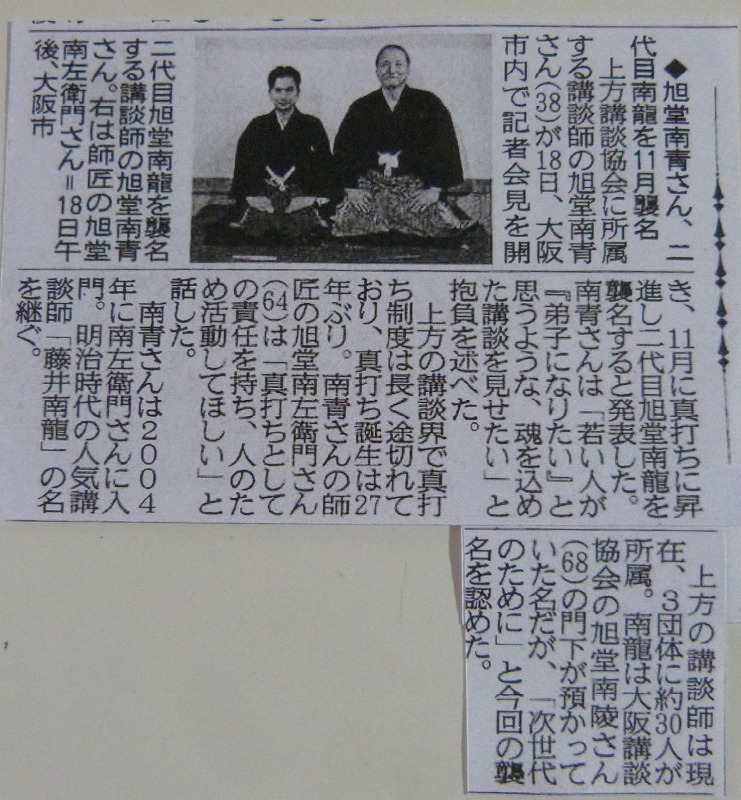 ◆旭堂南青さん、二
代目南龍を11月襲名
　上方講談協会に所属
する講談師の旭堂南青
さん(38)が18日、大阪
市内で記者会見を開
二代目旭堂南龍を襲名
する講談師の旭堂南青
さん。右は師匠の旭堂
南左衛門さん＝18日午
後、大阪市
き、11月に真打ちに昇
進し二代目旭堂南龍を
襲名すると発表した。
南青さんは「若い人が
『弟子になりたい』と
思うような、魂を込め
た講談を見せたい」と
抱負を述べた。
　上方の講談界で真打
ち制度は長く途切れて
おり、真打ち誕生は27
年ぶり。南青さんの師
匠の旭堂南左衛門さん
(64)は「真打ちとして
の責任を持ち、人のた
め活動してほしい」と
話した。
　南青さんは２００４
年に南左衛門さんに入
門。明治時代の人気講
談師「藤井南龍」の名
を継ぐ。
　上方の講談師は現
在、３団体に約30人が
所属。南龍は大阪講談
協会の旭堂南陵さん
(68)の門下が預かって
いた名だが、「次世代
のために」と今回の襲
名を認めた。